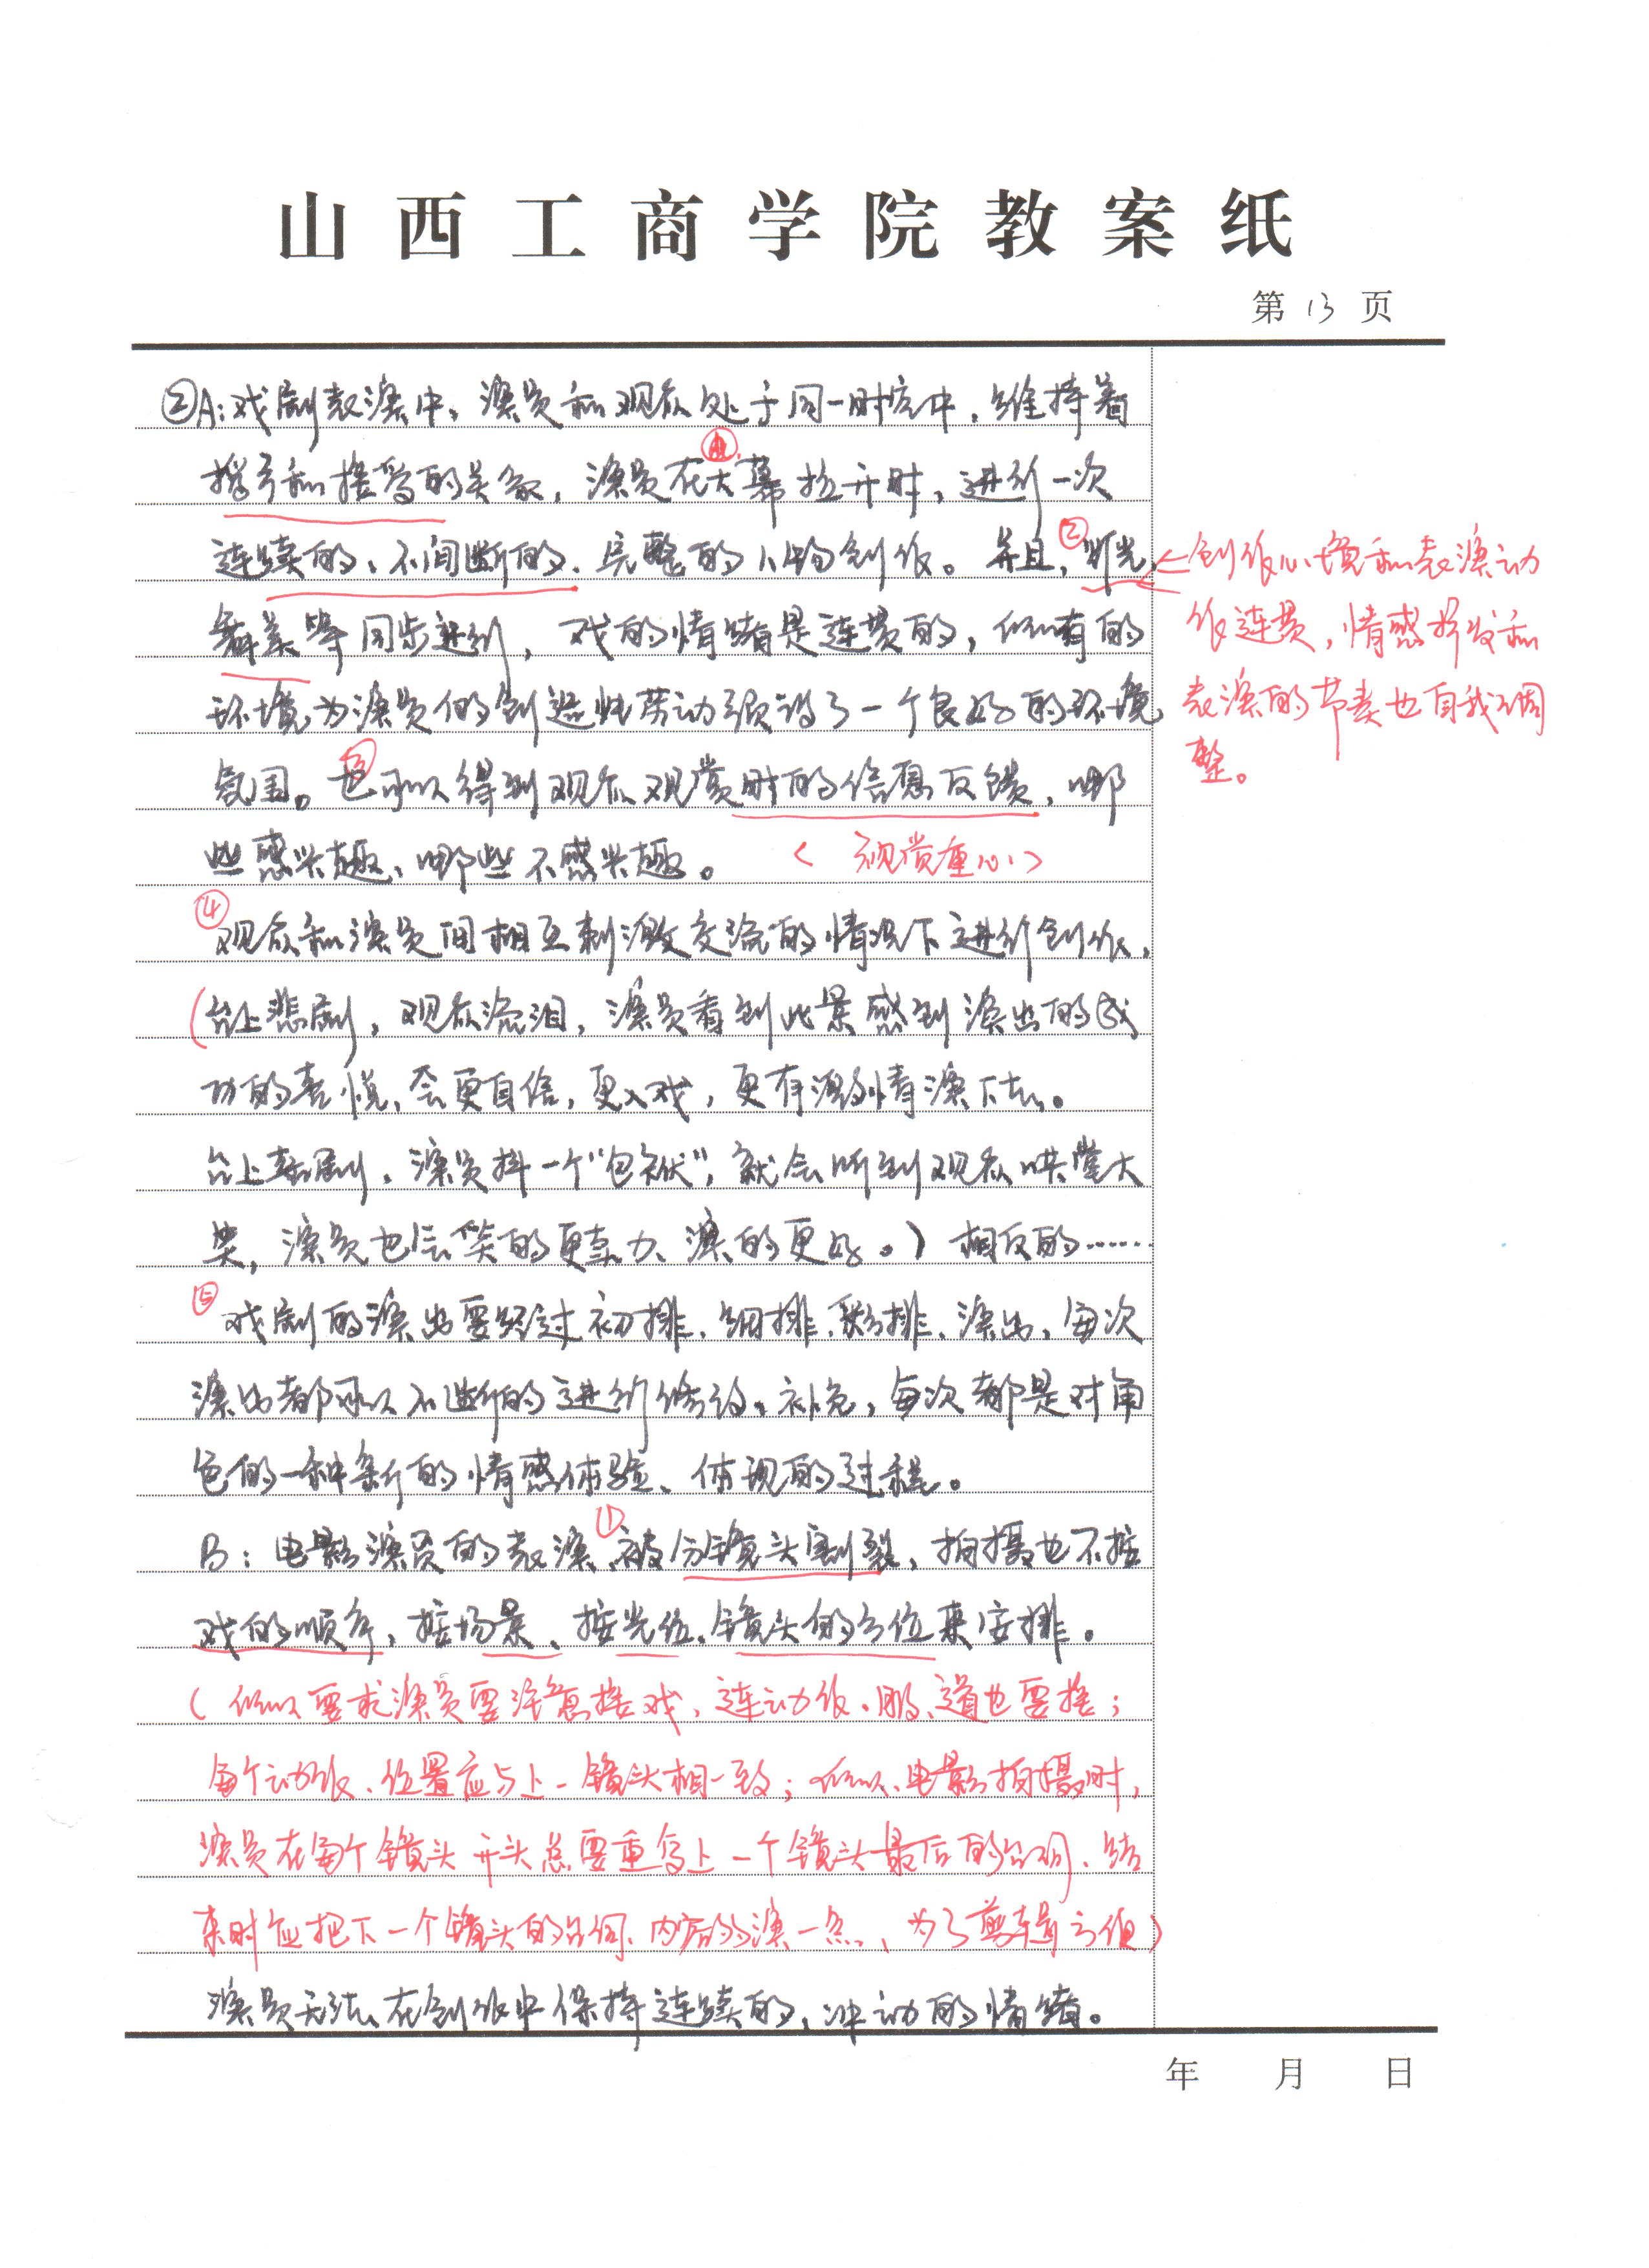 山西工商学院教案纸
第 13 页
②A:戏剧表演中,演员和观众处于同一时空中,维持着
①
指引和接受的关系,演员在大幕拉开时,进行一次
连续的、不间断的、完整的人物创作。并且,②灯光、
←创作心境和表演动
舞美等同步进行,戏的情绪是连贯的,所有的
作连贯,情感抒发和
环境为演员的创造性劳动预设了一个良好的环境
表演的节奏也自我调
整。
氛围。③也可以得到观众观赏时的信息反馈,哪
些感兴趣、哪些不感兴趣。(观赏重心)
④
观众和演员间相互刺激交流的情况下进行创作,
(台上悲剧,观众流泪,演员看到此景感到演出的成
功的喜悦,会更自信,更入戏,更有激情演下去。
台上喜剧,演员抖一个“包袱”,就会听到观众哄堂大
笑,演员也会笑的更卖力、演的更好。)相反的……
⑤戏剧的演出要经过初排、细排、彩排、演出,每次
演出都可以不断的进行修改、补充,每次都是对角
色的一种新的情感体验、体现的过程。
B:电影演员的表演①被分镜头割裂,拍摄也不按
戏的顺序,按场景、按光位、镜头的方位来安排。
(所以要求演员要注意接戏,连动作、服、道也要接;
每个动作、位置应与上一镜头相一致;所以、电影拍摄时,
演员在每个镜头开头总要重复上一个镜头最后的台词、结
束时应把下一个镜头的台词、内容的演一点、为了剪辑方便)
演员无法在创作中保持连续的,冲动的情绪。
年 月 日